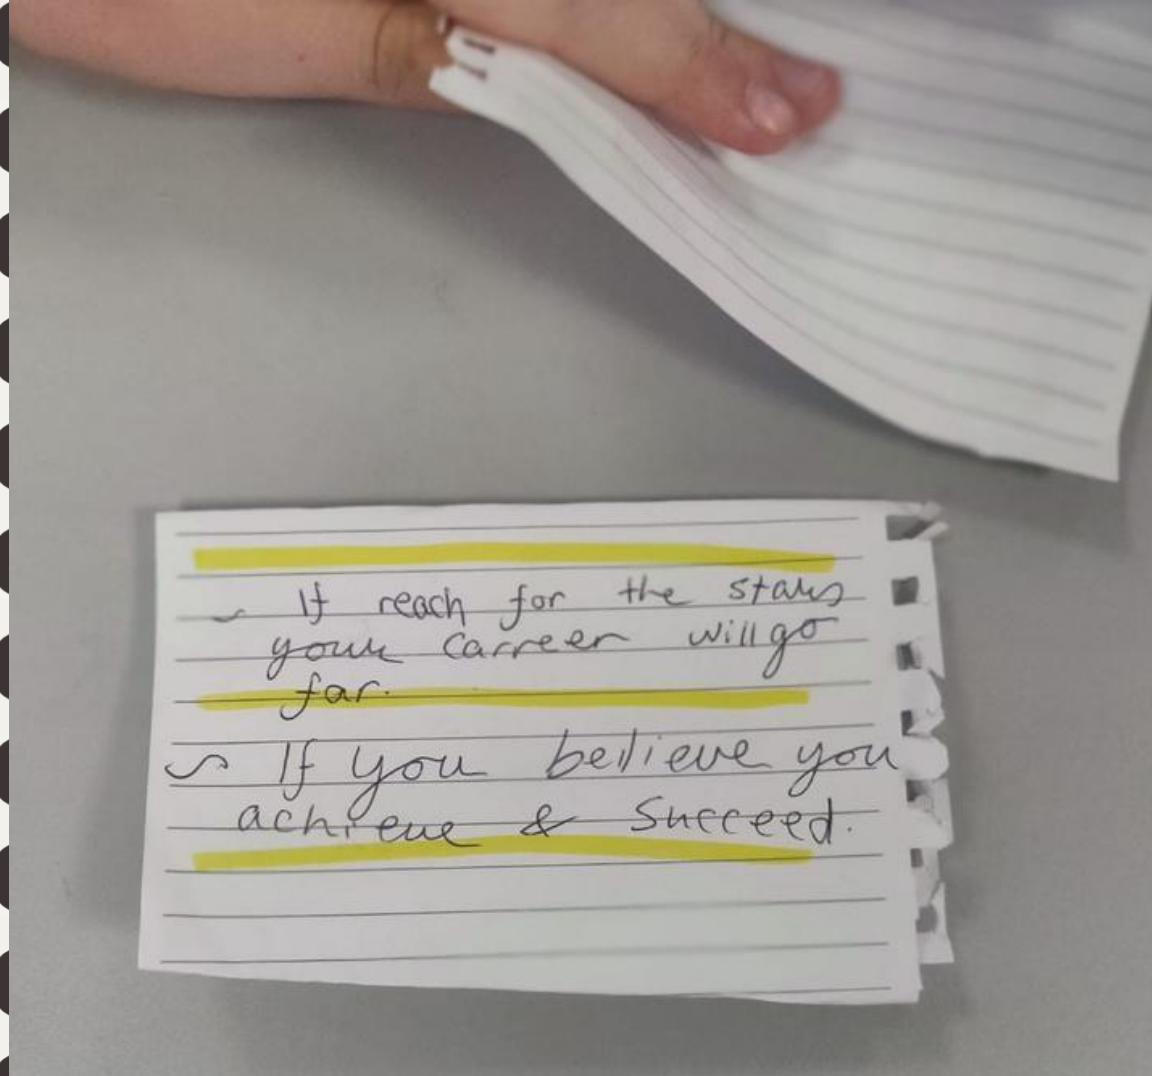 ~ If reach for the stars
your carreer will go
far.
~ If you beilieve you
achieve & Succeed.